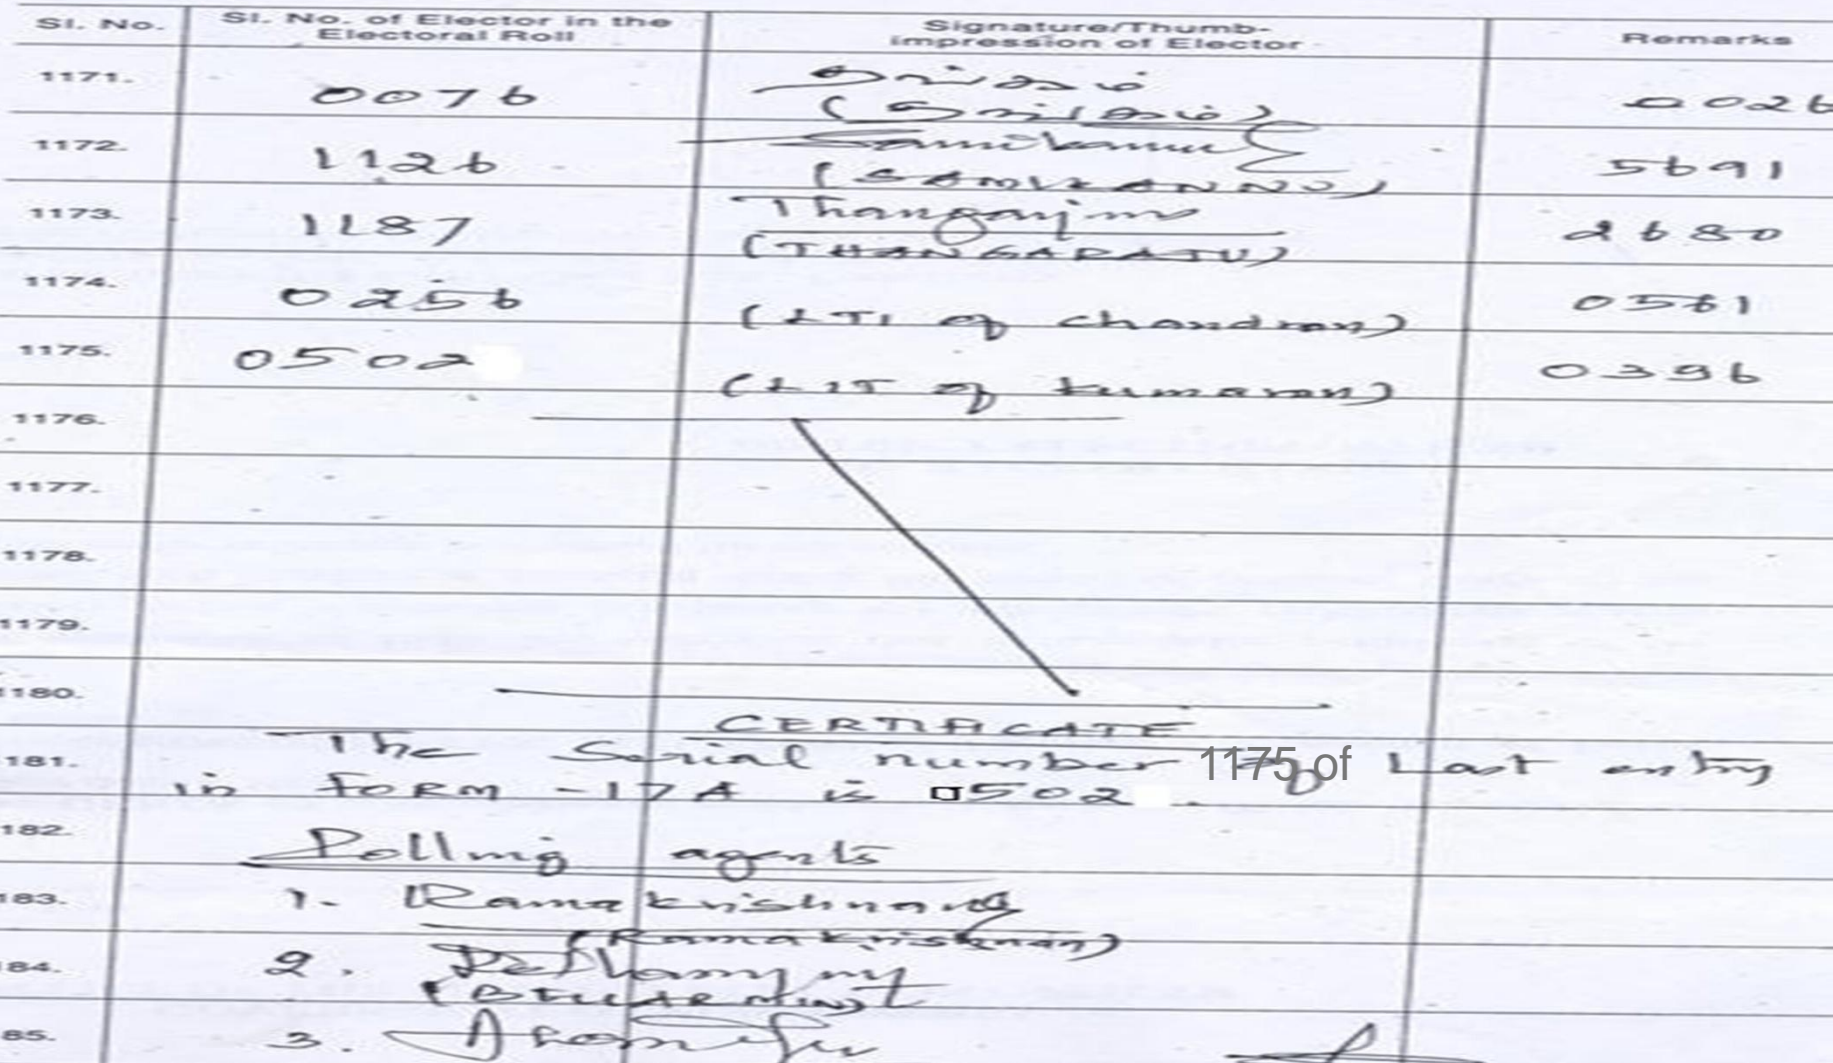 Sl. No. Sl. No. of Elector in the Electoral Roll Signature/Thumb-impression of Elector Remarks
1171. 0076 தங்கம் 0026
(தங்கம்)
1172. 1126 Samikannu 5691
(SAMIKANNU)
1173. 1187 Thangaraju 2680
(THANGARAJU)
1174. 0256 (LTI of chandran) 0561
1175. 0502 (LIT of kumaran) 0396
1176.
1177.
1178.
1179.
1180.
CERTIFICATE
181. The Serial number 1175 of Last entry
in FORM - 17A is 0502
182. Polling agents
183. 1. Ramakrishnan
(Ramakrishnan)
184. 2.
185. 3.